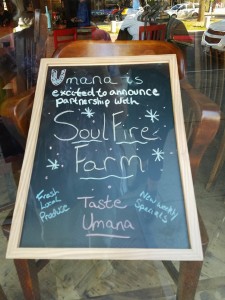 Umana is
excited to announce
partnership with
Soul Fire
Farm
Fresh
Local
Produce
New weekly
Specials
Taste
Umana